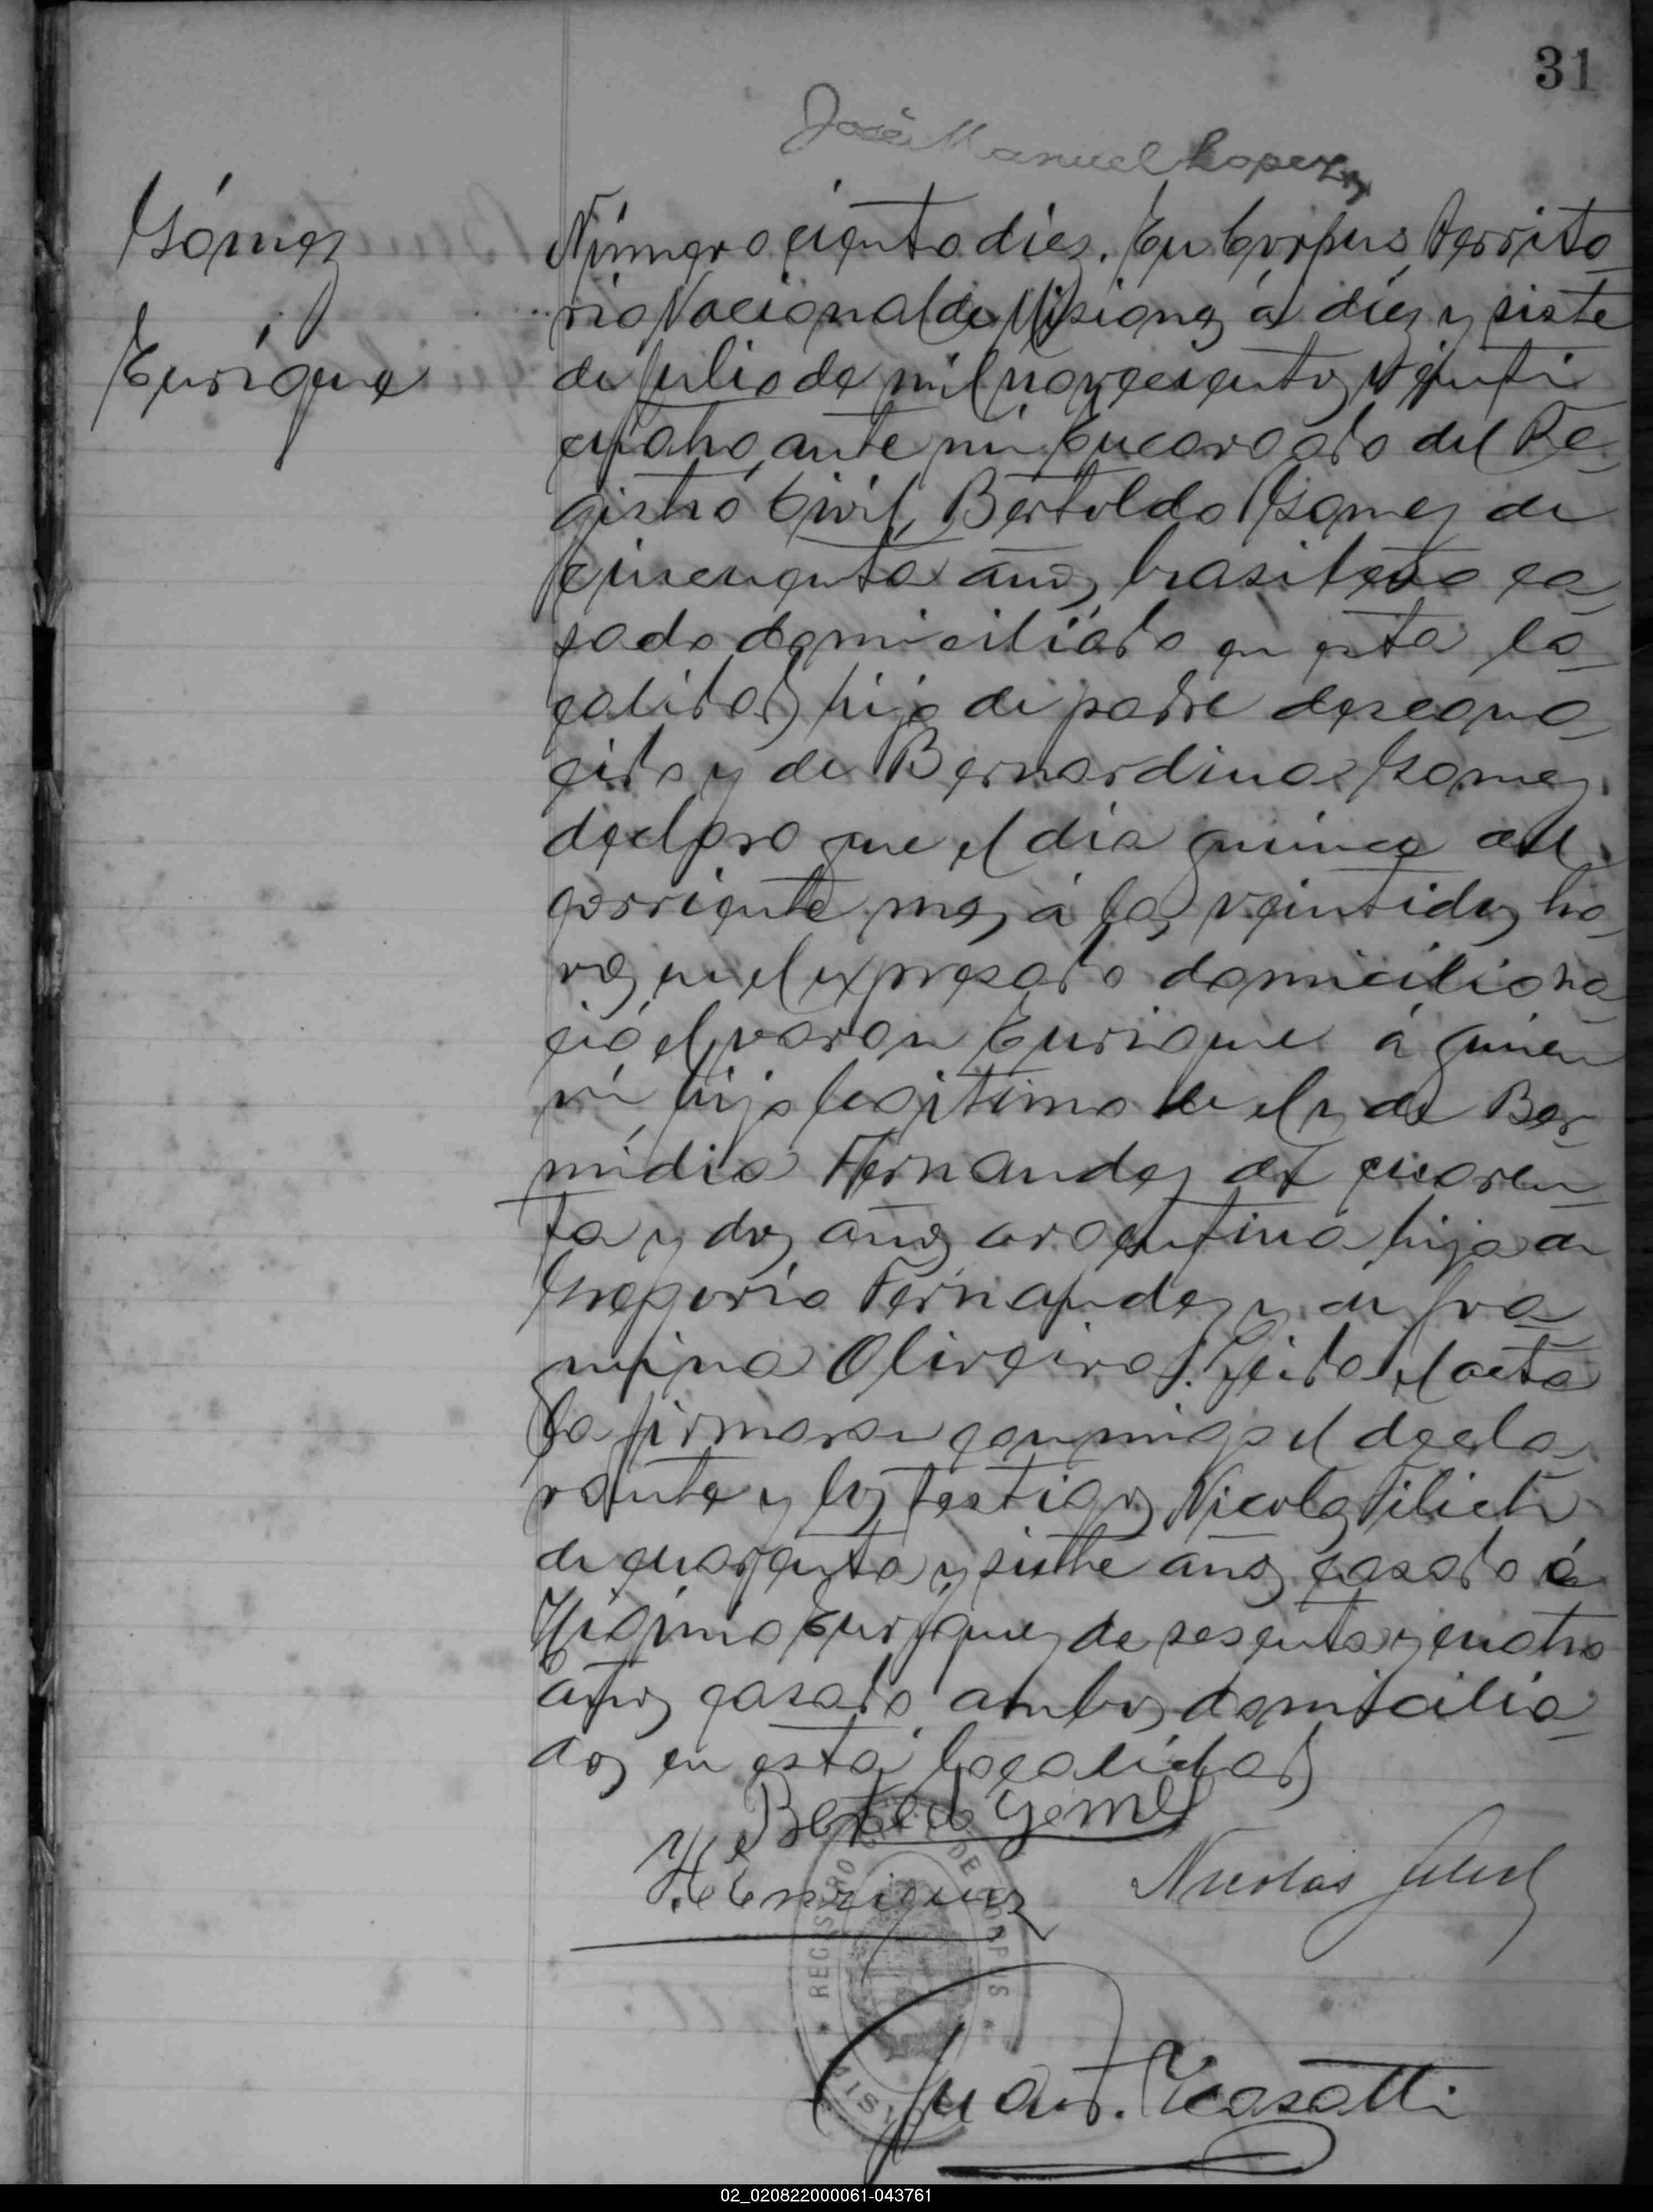 31
José Manuel Lopez
Gómez
Enrique
Número ciento diez. En Corpus, Territo
rio Nacional de Misiones á diez y siete
de Julio de mil novecientos veinti
cuatro, ante mi Encargado del Re
gistro Civil, Bertoldo Gomez de
cincuenta años, brasilero ca
sado domiciliado en esta lo
calidad, hijo de padre descono
cido y de Bernardina Gomez
declaro que el dia quince del
corriente mes, á las veintidos ho
ras, en el expresado domicilio na
ció el varon Enrique á quien
ví, hijo legitimo de el y de Ber
midia Fernandez de cuaren
ta y dos años argentina hija de
Gregorio Fernandez y de
Oliveira. Leida el acta
la firmaron conmigo el decla
rante y los testigos Nicolas Filich
de cuarenta y siete años, casado é
Higinio Enriquez de sesenta y cuatro
años, casado, ambos domicilia
dos en esta localidad
Bertoldo Gomez
H. Enriquez
Nicolas Filich
REGISTRO CIVIL DE CORPUS
MISIONES
Juan F. Casatti
02_020822000061-043761